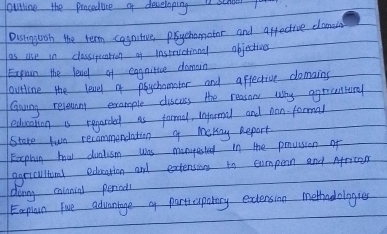 Outline the procedure of developing a school
Distinguish the term cognitive, psychomotor and affective domain
as use in classification of instructional objectives
Explain the level of cognitive domain
Outline the level of psychomotor and affective domains
Giving relevant example discuss the reasons why agricultural
education is regarded as formal, informal and non-formal
State two recommendation of McKay Report
Explain how dualism was manifested in the provision of
agricultural education and extensions to european and Africans
during colonial period
Explain five advantage of participatory extension methodologies